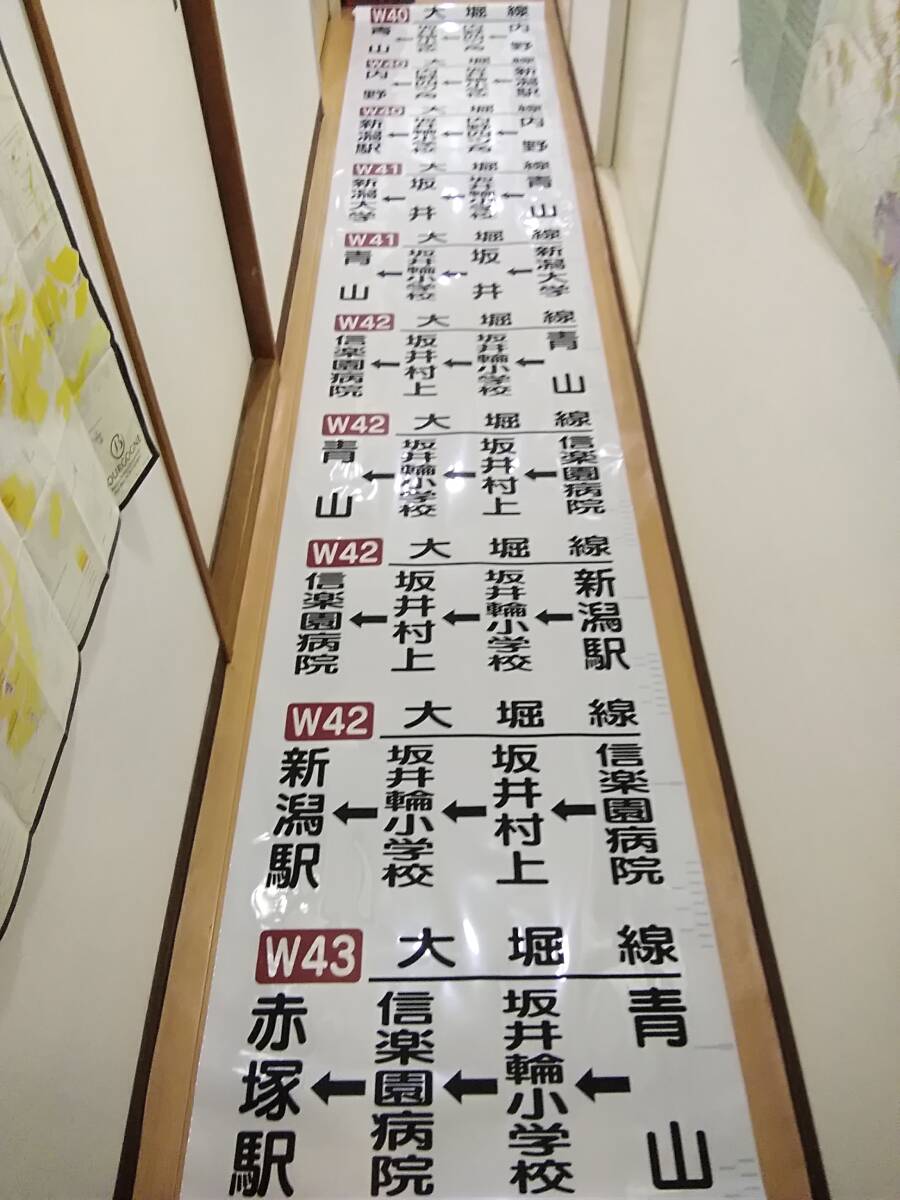 W40 大堀線
内野
←
内野四ツ角
←
坂井輪小学校
←
青山
W40 大堀線
新潟駅
←
坂井輪小学校
←
内野四ツ角
←
内野
W40 大堀線
内野
←
内野四ツ角
←
坂井輪小学校
←
新潟駅
W41 大堀線
青山
←
坂井輪小学校
←
坂井
←
新潟大学
W41 大堀線
新潟大学
←
坂井
←
坂井輪小学校
←
青山
W42 大堀線
青山
←
坂井輪小学校
←
坂井村上
←
信楽園病院
W42 大堀線
信楽園病院
←
坂井村上
←
坂井輪小学校
←
青山
W42 大堀線
新潟駅
←
坂井輪小学校
←
坂井村上
←
信楽園病院
W42 大堀線
信楽園病院
←
坂井村上
←
坂井輪小学校
←
新潟駅
W43 大堀線
青山
←
坂井輪小学校
←
信楽園病院
←
赤塚駅
B
OURGOGNE